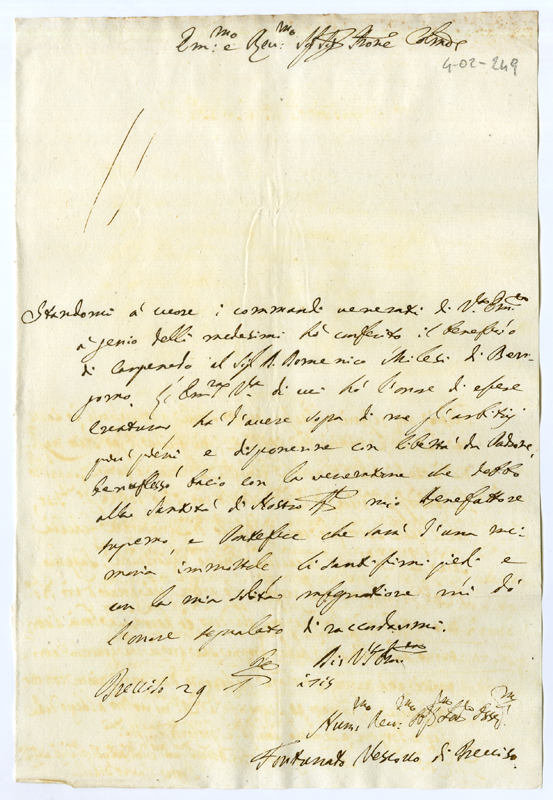 Em:mo e Rev:mo Sig Sig Prone Colmo
4-02-249
Standomi à cuore i commandi venerati di V.ra Em.za
à genio delli medesimi hò conferito il Beneficio
di Carpenedo al Sig.r D. Domenico Milesi di Ber=
gomo. L' Em.za V.ra di cui hò l'onore di essere
Creatura hà d'avere sopra di me gl'arbitrij
più pieni e disponerne con libertà da Padrone,
bacio con la veneratione che debbo
alla Santità di Nostro Sig.re mio Benefattore
supremo, e Pontefice che sarà d'una me=
moria immortale li santissimi piedi e
con la mia solita rassegnatione mi dò
l'onore segnalato di raccordarmi.
Di V.ra Em.za
Treviso 29
Hum:mo Dev:mo Serv:
Fortunato Vescovo di Treviso